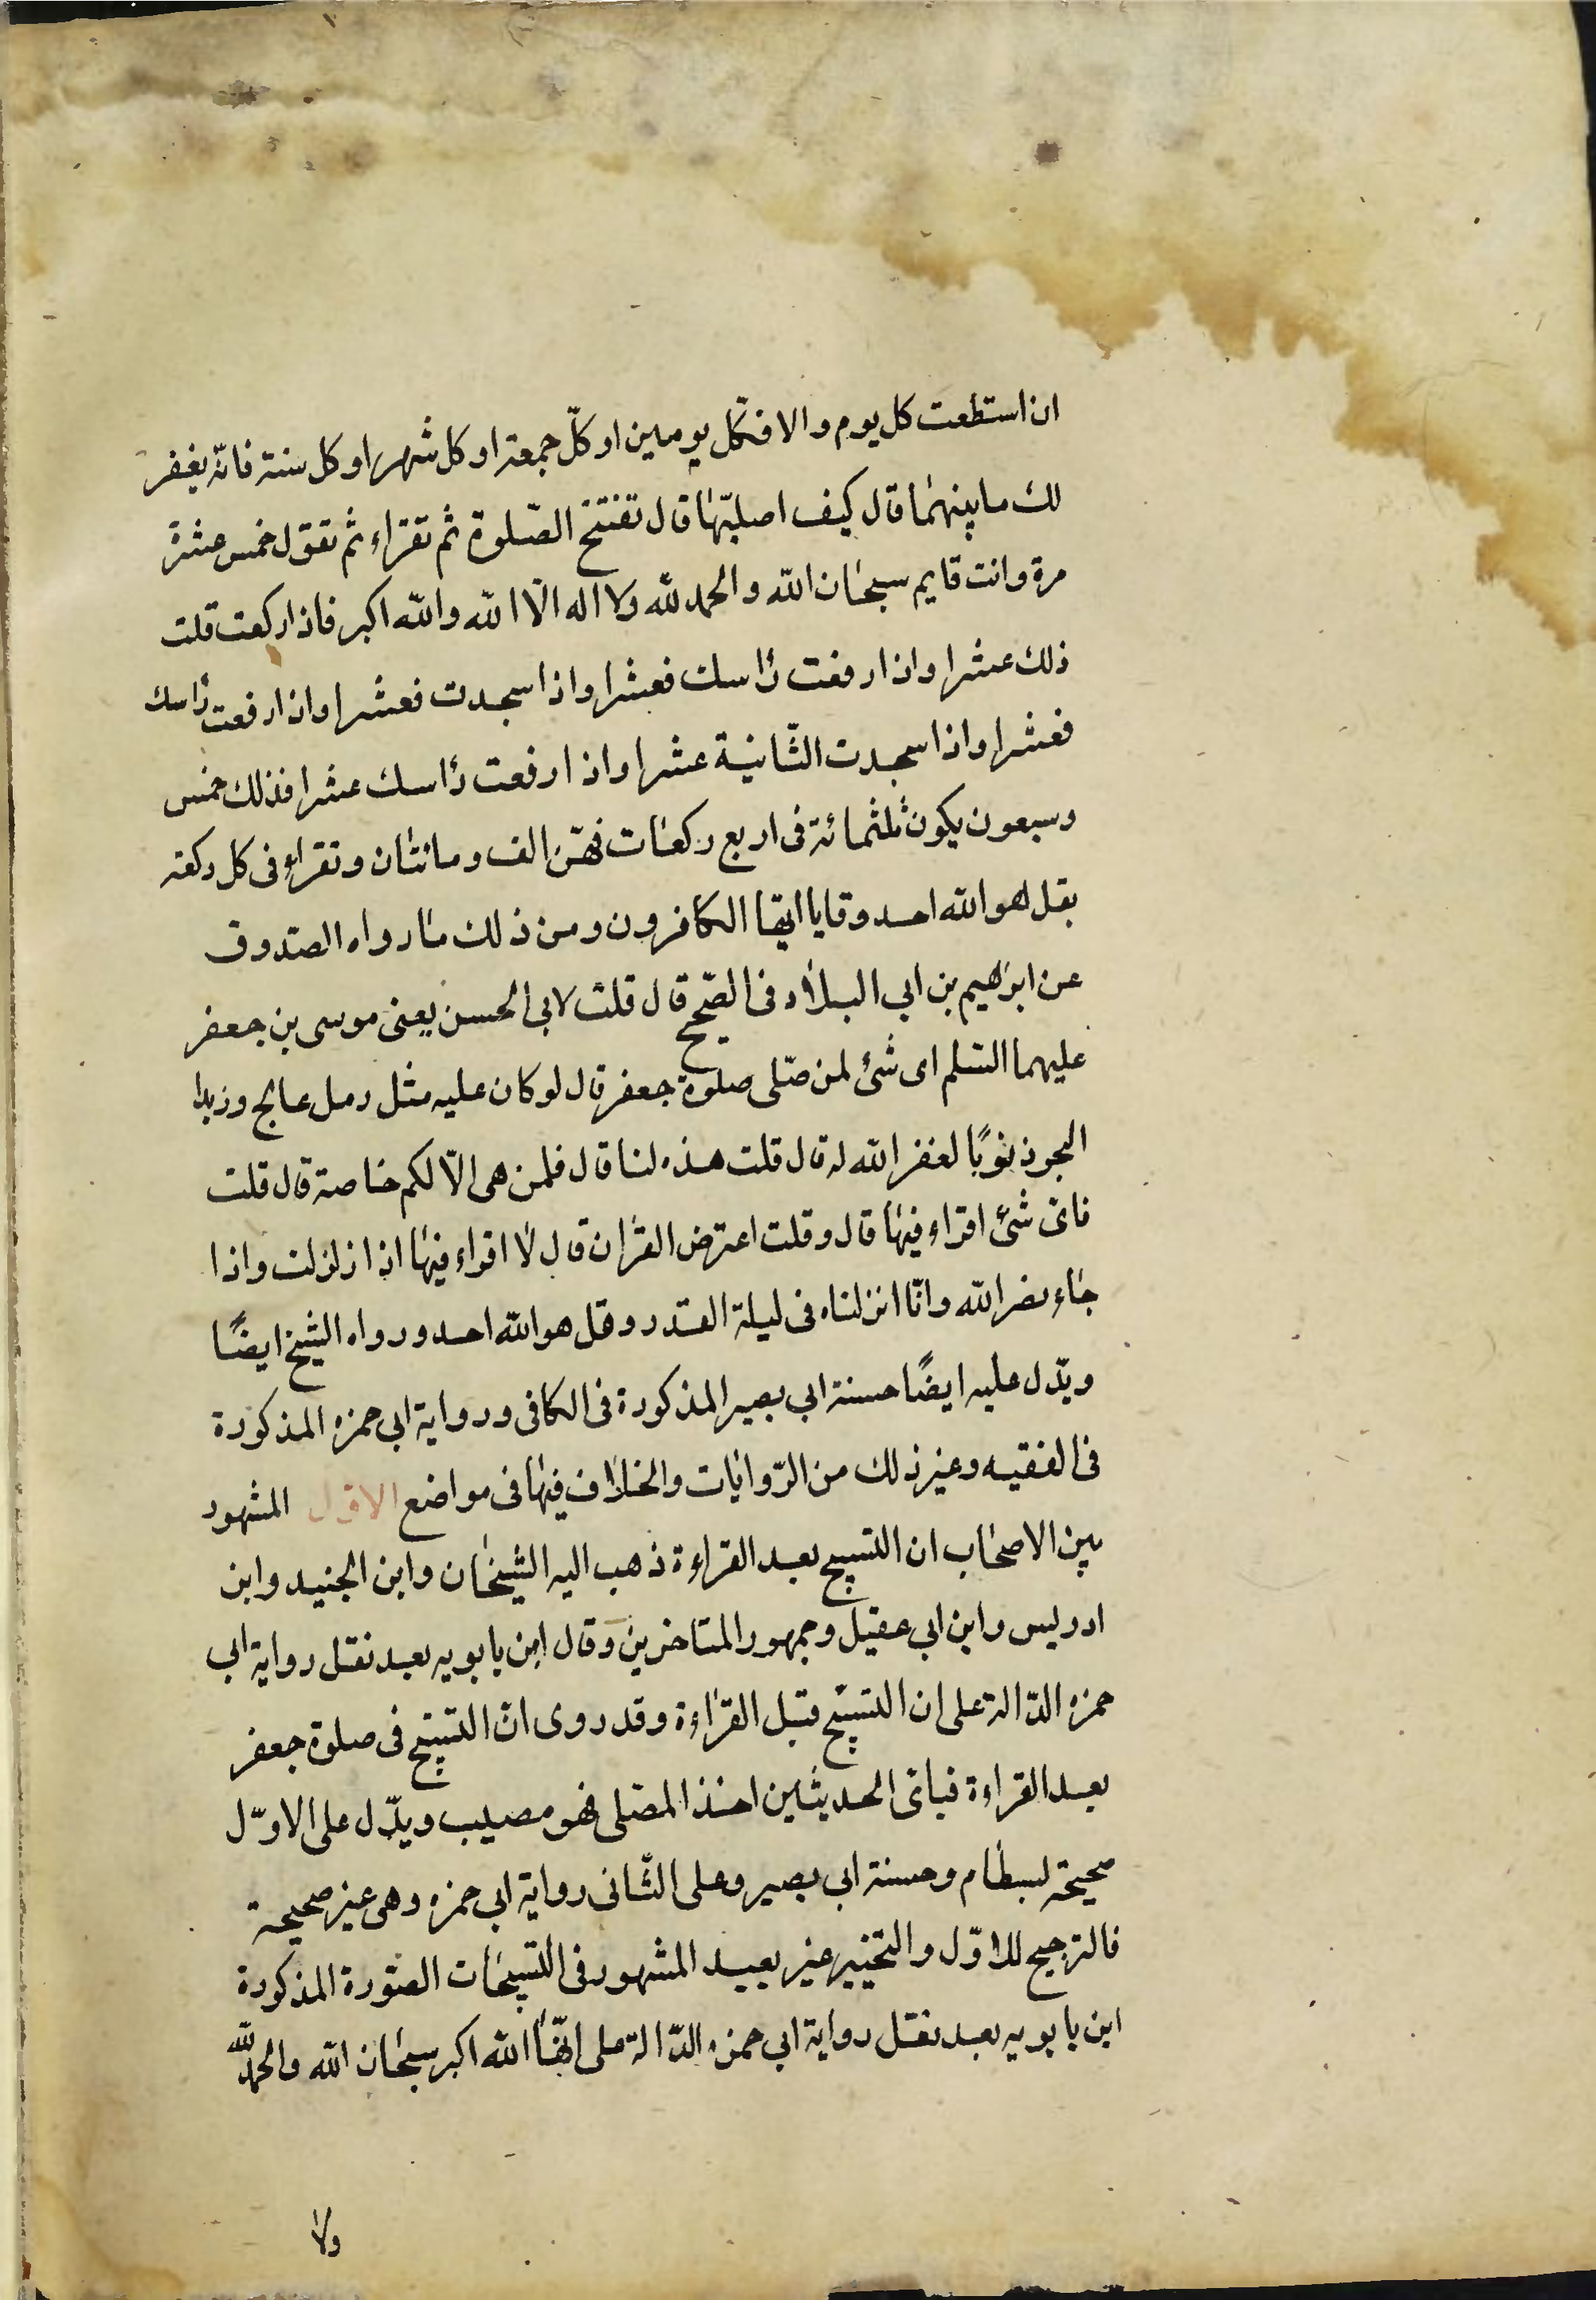 ان استطعت كل يوم والا فكل يومين او كلّ جمعة او كل شهر او كل سنة فانّه يغفر
لك ما بينهما قال كيف اصليّها قال تفتتح الصّلوة ثم تقراء ثم تقول خمس عشرة
مرة وانت قايم سبحان الله والحمد لله ولا اله الّا الله والله اكبر فاذا ركعت قلت
ذلك عشرا واذا رفعت رأسك فعشرا واذا سجدت فعشرا واذا رفعت رأسك
فعشرا واذا سجدت الثّانية عشرا واذا رفعت رأسك عشرا فذلك خمس
وسبعون يكون ثلثمائة فى اربع ركعات فهّن الف ومائتان وتقراء فى كل ركعة
بقل هو الله احد وقايا ايها الكافرون ومن ذلك ما رواه الصدوق
عن ابرهيم بن ابي البلاد فى الصّحيح قال قلت لابى الحسن يعنى موسى بن جعفر
عليهما السّلم اى شئ لمن صّلى صلوة جعفر قال لو كان عليه مثل رمل عالج وزبد
البحر ذنوبًا لغفر الله له قال قلت هذه لنا قال فلمن هى الّا لكم خاصة قال قلت
فاىّ شئ اقراء فيها قال وقلت اعترض القران قال لا اقراء فيها اذا زلزلت واذا
جاء نصر الله وانّا انزلناه فى ليلة القدر وقل هو الله احد ورواه الشيخ ايضًا
ويدّل عليه ايضًا حسنة ابي بصير المذكورة فى الكافى ورواية ابى حمزه المذكورة
فى الفقيه وغير ذلك من الرّوايات والخلاف فيها فى مواضع الاول المشهور
بين الاصحاب ان التسبيح بعد القراءة ذهب اليه الشيخان وابن الجنيد وابن
ادريس وابن ابي عقيل وجمهور المتاخرين وقال ابن بابويه بعد نقل رواية ابي
حمزه الدّالة على ان التسبيح قبل القراءة وقد روى انّ التسبيح فى صلوة جعفر
بعد القراءة فباىّ الحديثين اخذ المصّلى فهو مصيب ويدّل على الاوّل
صحيحة لبسطام وحسنة ابى بصير وعلى الثّانى رواية ابى حمزه وهى غير صحيحة
فالترجيح للاوّل والتخيير غير بعيد المشهور فى التسبيحات الصّورة المذكورة
ابن بابويه بعد نقل رواية ابى حمزه الدّالة على انّها الله اكبر سبحان الله والحمد لله
ولا